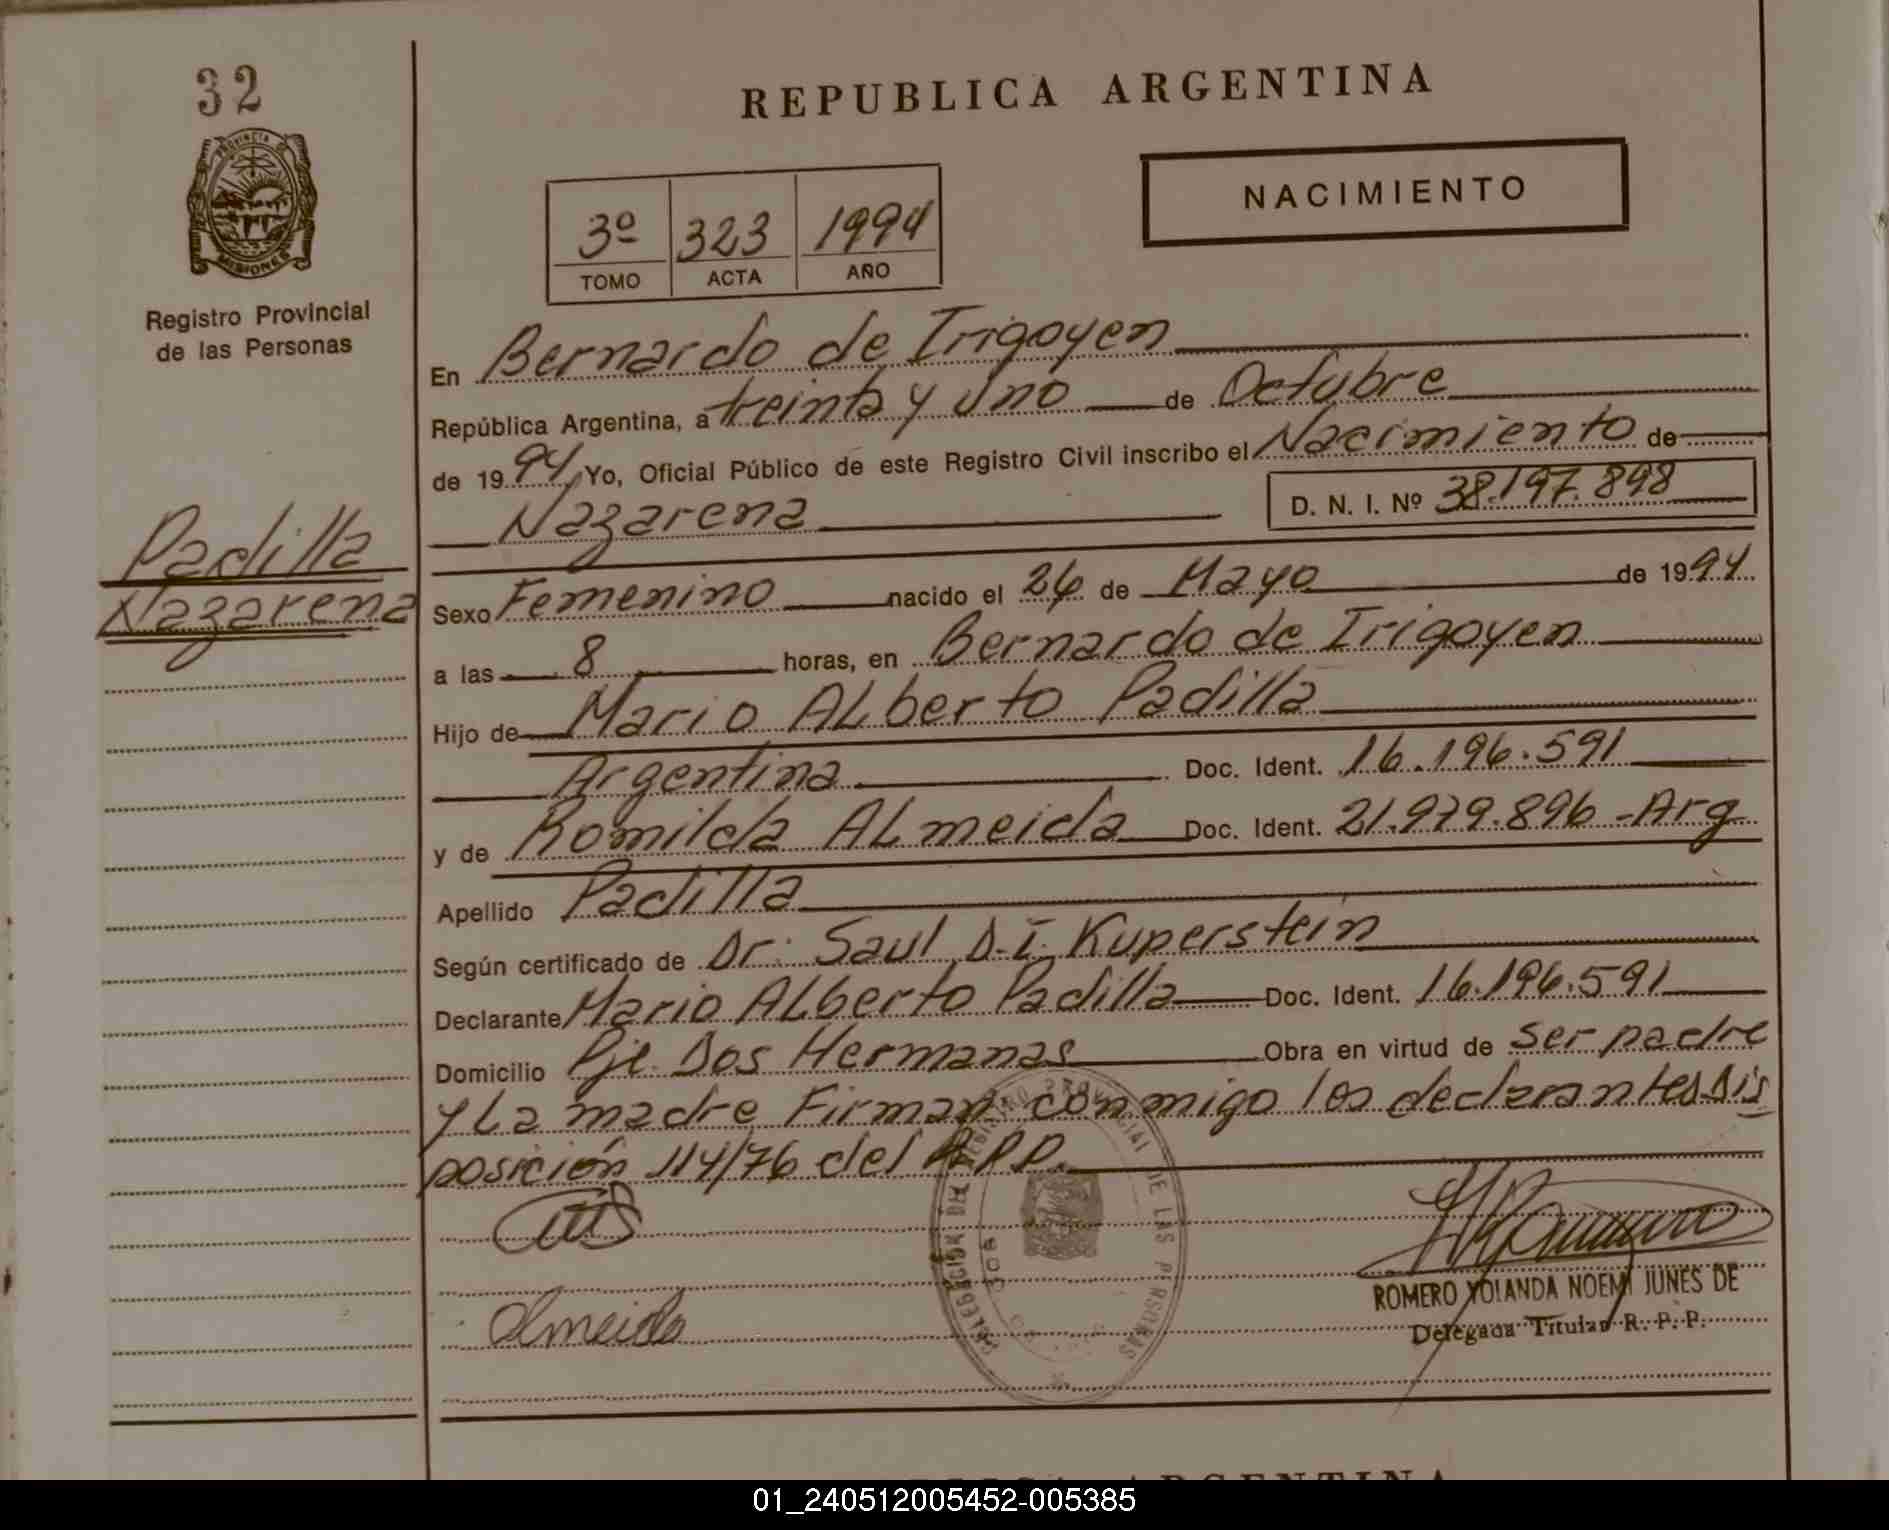 32
PROVINCIA DE
MISIONES
Registro Provincial
de las Personas
Padilla
Nazarena
REPUBLICA ARGENTINA
3º 323 1994
TOMO ACTA AÑO
NACIMIENTO
En Bernardo de Irigoyen
República Argentina, a treinta y uno de Octubre
de 1994 Yo, Oficial Público de este Registro Civil inscribo el Nacimiento de
Nazarena D. N. I. Nº 38.197.898
Sexo Femenino nacido el 26 de Mayo de 1994
a las 8 horas, en Bernardo de Irigoyen
Hijo de Mario ALberto Padilla
Argentina Doc. Ident. 16.196.591
y de Romilda ALmeida Doc. Ident. 21.979.896 - Arg
Apellido Padilla
Según certificado de Dr: Saul D.I. Kuperstein
Declarante Mario ALberto Padilla Doc. Ident. 16.196.591
Domicilio Pje. Dos Hermanas Obra en virtud de ser padre
y La madre Firman conmigo los declarantes Dis
posición 114/76 del R.P.P.
DELEGACION DEL REGISTRO PROVINCIAL DE LAS PERSONAS
308
Almeida
ROMERO YOLANDA NOEMI JUNES DE
Delegada Titular R. P. P.
ARGENTINA
01_240512005452-005385